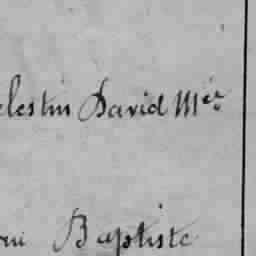 elestin David Mér
Baptiste